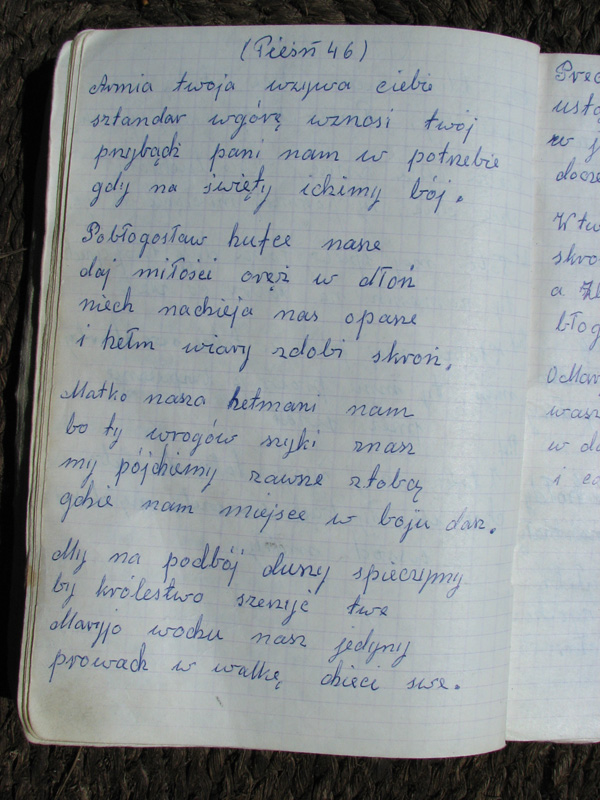 (Pieśń 46)
Armia twoja wzywa ciebie
sztandar wgórę wznosi twój
przybądź pani nam w potrzebie
gdy na święty idziemy bój.
Pobłogosław hufce nasze
daj miłości oręż w dłoń
niech nadzieja nas opasze
i hełm wiary zdobi skroń.
Matko nasza hetmani nam
bo ty wrogów szyki znasz
my pójdziemy zawsze ztobą
gdzie nam miejsce w boju dasz.
My na podbój duszy spieszymy
by królestwo szerzyć twe
Maryjo wodzu nasz jedyny
prowadź w walkę dzieci swe.